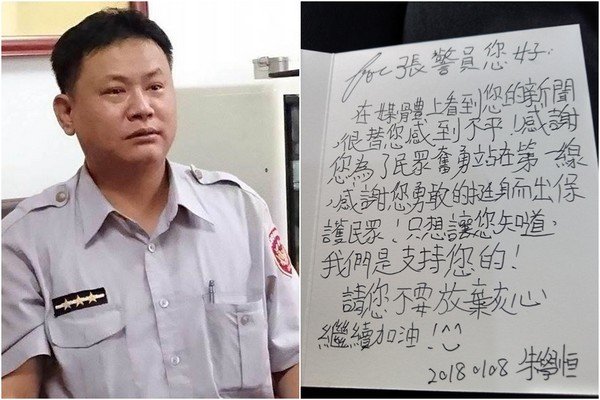 for 張警員您好:
在媒體上看到您的新聞
,很替您感到不平!感謝
您為了民眾奮勇站在第一線
,感謝您勇敢的挺身而出保
護民眾!只想讓您知道,
我們是支持您的!
請您不要放棄亥心
繼續加油!^^
20180108 朱學恒